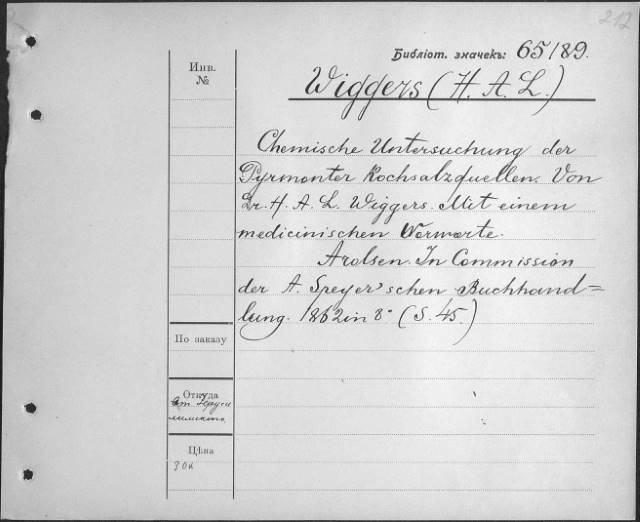 212
Библіот. значекъ: 65/89.
Инв.
№
Wiggers (H. A. L.)
Chemische Untersuchung der
Pyrmonter Kochsalzquellen. Von
Dr. H. A. L. Wiggers. Mit einem
medicinischen Vorworte.
Arolsen. In Commission
der A. Speyer'schen Buchhand=
lung. 1862 in 8° (S. 45.)
По заказу
Откуда
Цѣна
30к